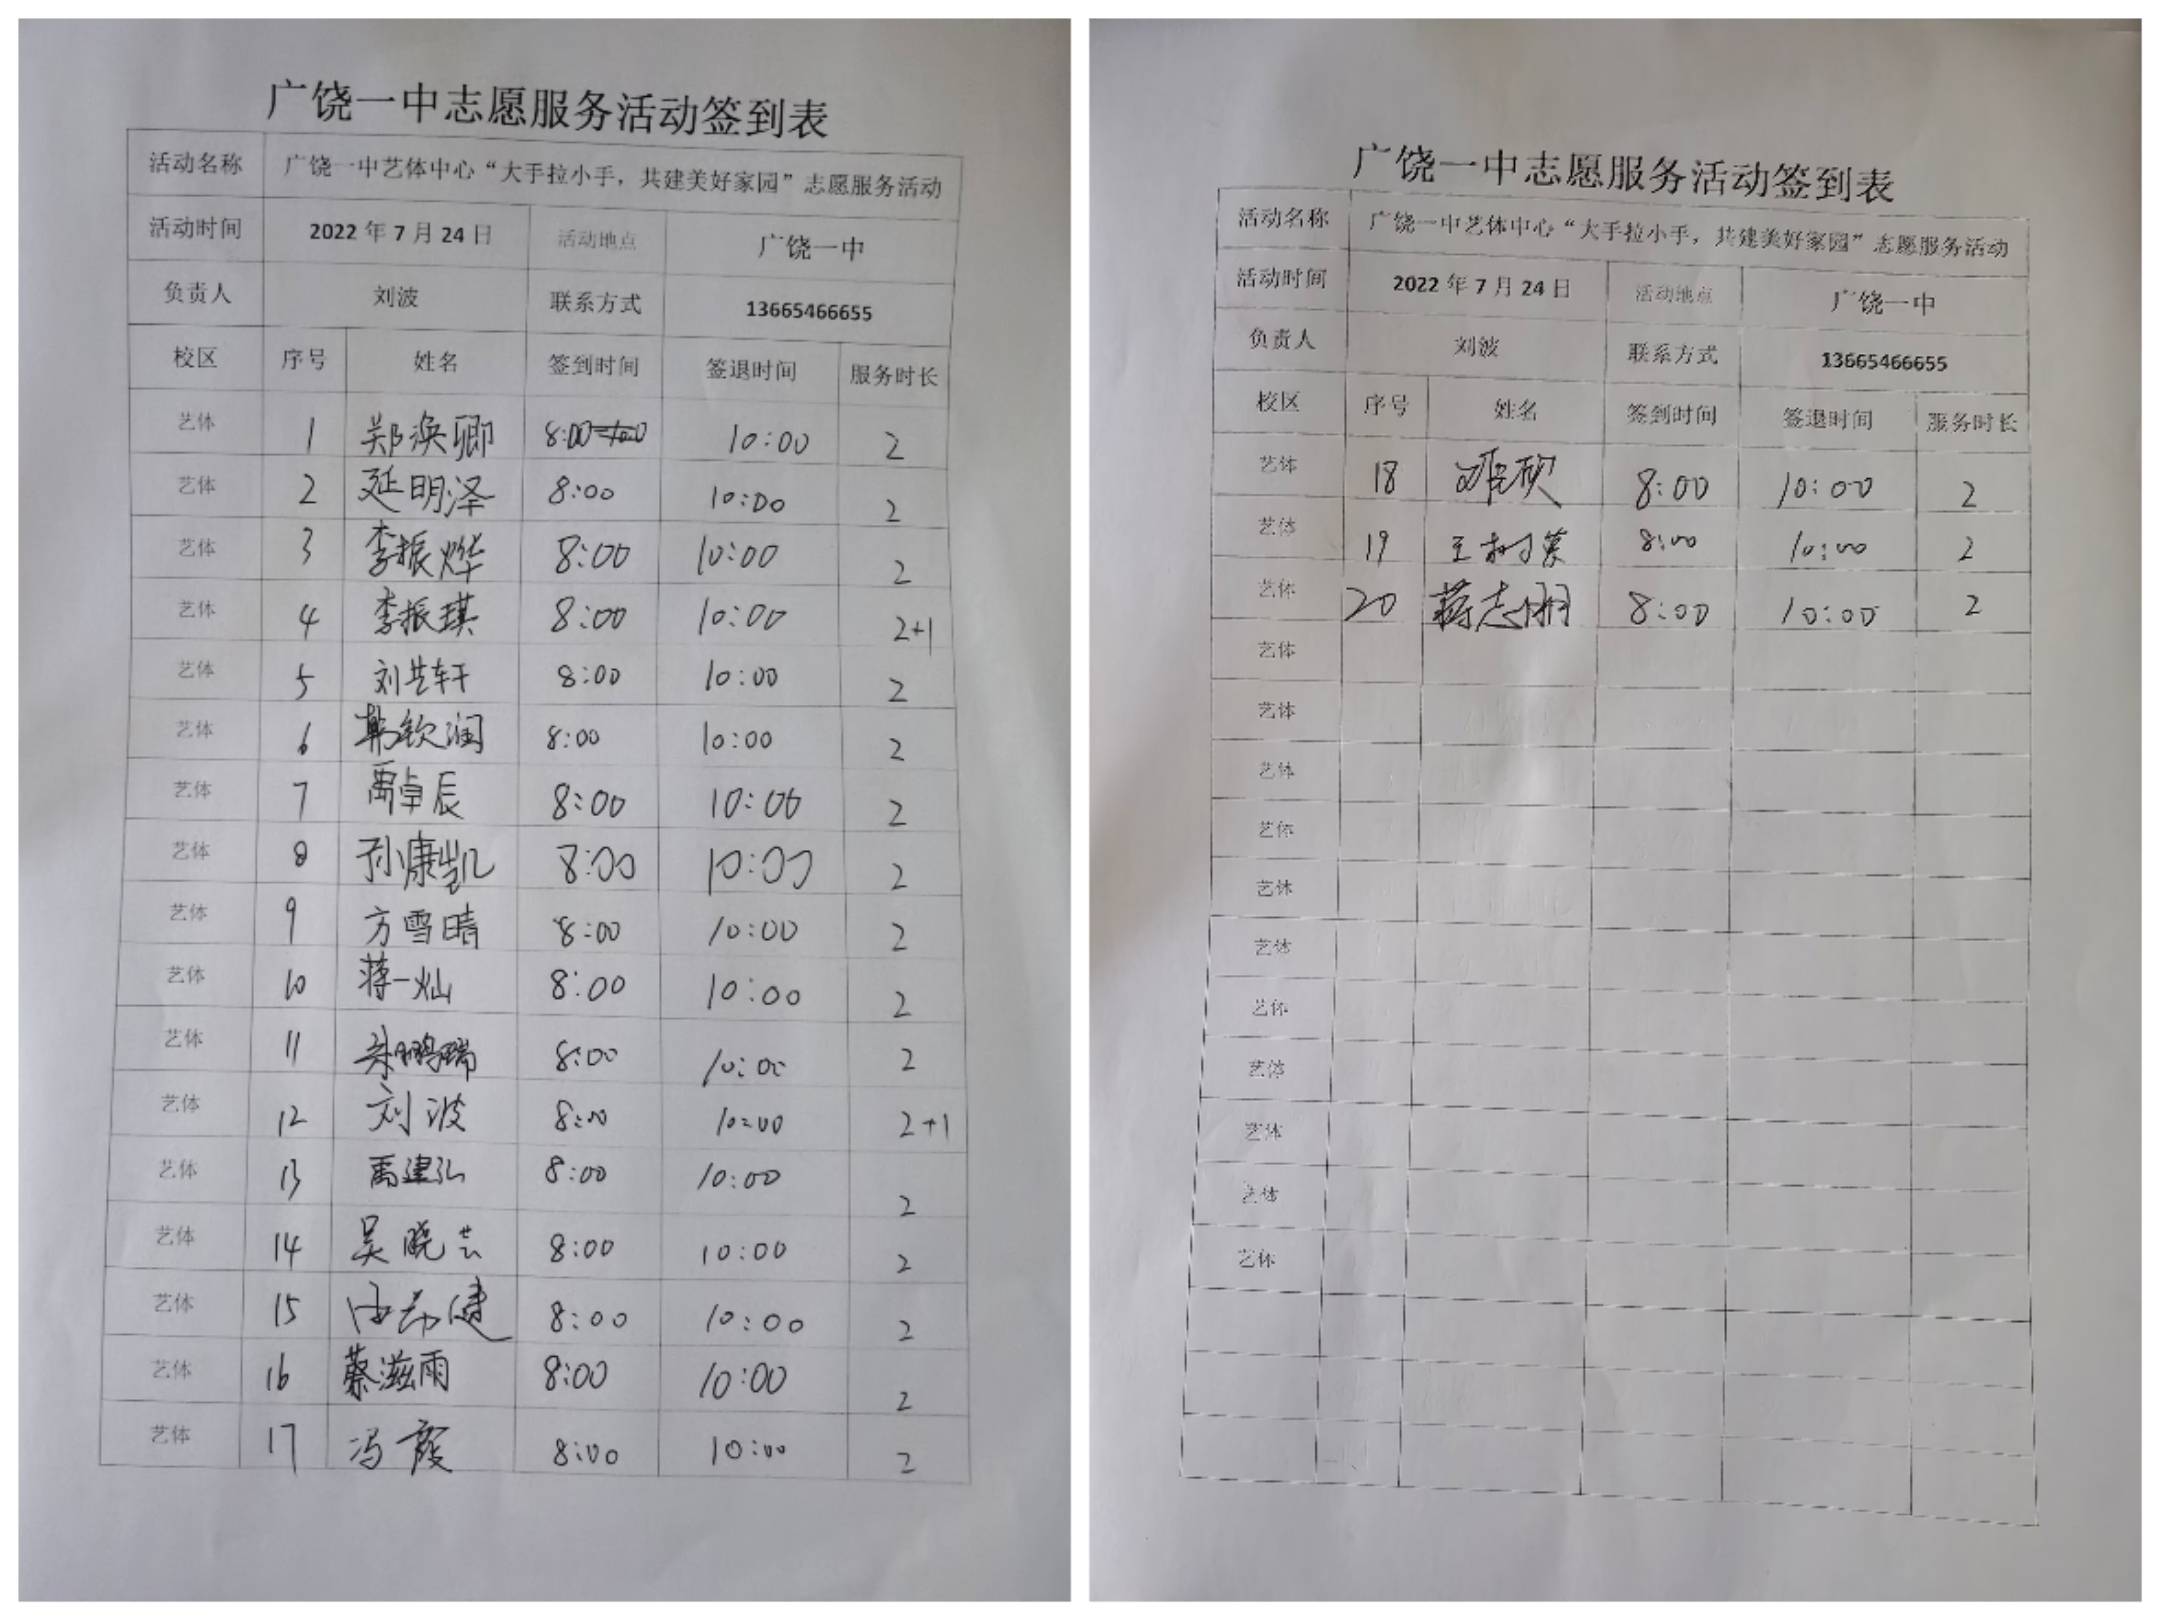 广饶一中志愿服务活动签到表
活动名称 广饶一中艺体中心“大手拉小手，共建美好家园”志愿服务活动
活动时间 2022 年 7 月 24 日 活动地点 广饶一中
负责人 刘波 联系方式 13665466655
校区 序号 姓名 签到时间 签退时间 服务时长
艺体 1 郑焕卿 8:00 10:00 2
艺体 2 延明泽 8:00 10:00 2
艺体 3 李振烨 8:00 10:00 2
艺体 4 李振琪 8:00 10:00 2+1
艺体 5 刘芸轩 8:00 10:00 2
艺体 6 韩钦润 8:00 10:00 2
艺体 7 禹卓辰 8:00 10:00 2
艺体 8 孙康凯 8:00 10:00 2
艺体 9 方雪晴 8:00 10:00 2
艺体 10 蒋一灿 8:00 10:00 2
艺体 11 朱鹏瑞 8:00 10:00 2
艺体 12 刘波 8:00 10:00 2+1
艺体 13 禹建弘 8:00 10:00 2
艺体 14 吴晓芸 8:00 10:00 2
艺体 15 8:00 10:00 2
艺体 16 蔡滋雨 8:00 10:00 2
艺体 17 冯霞 8:00 10:00 2
广饶一中志愿服务活动签到表
活动名称 广饶一中艺体中心“大手拉小手，共建美好家园”志愿服务活动
活动时间 2022 年 7 月 24 日 活动地点 广饶一中
负责人 刘波 联系方式 13665466655
校区 序号 姓名 签到时间 签退时间 服务时长
艺体 18 8:00 10:00 2
艺体 19 8:00 10:00 2
艺体 20 蒋志刚 8:00 10:00 2
艺体
艺体
艺体
艺体
艺体
艺体
艺体
艺体
艺体
艺体
艺体